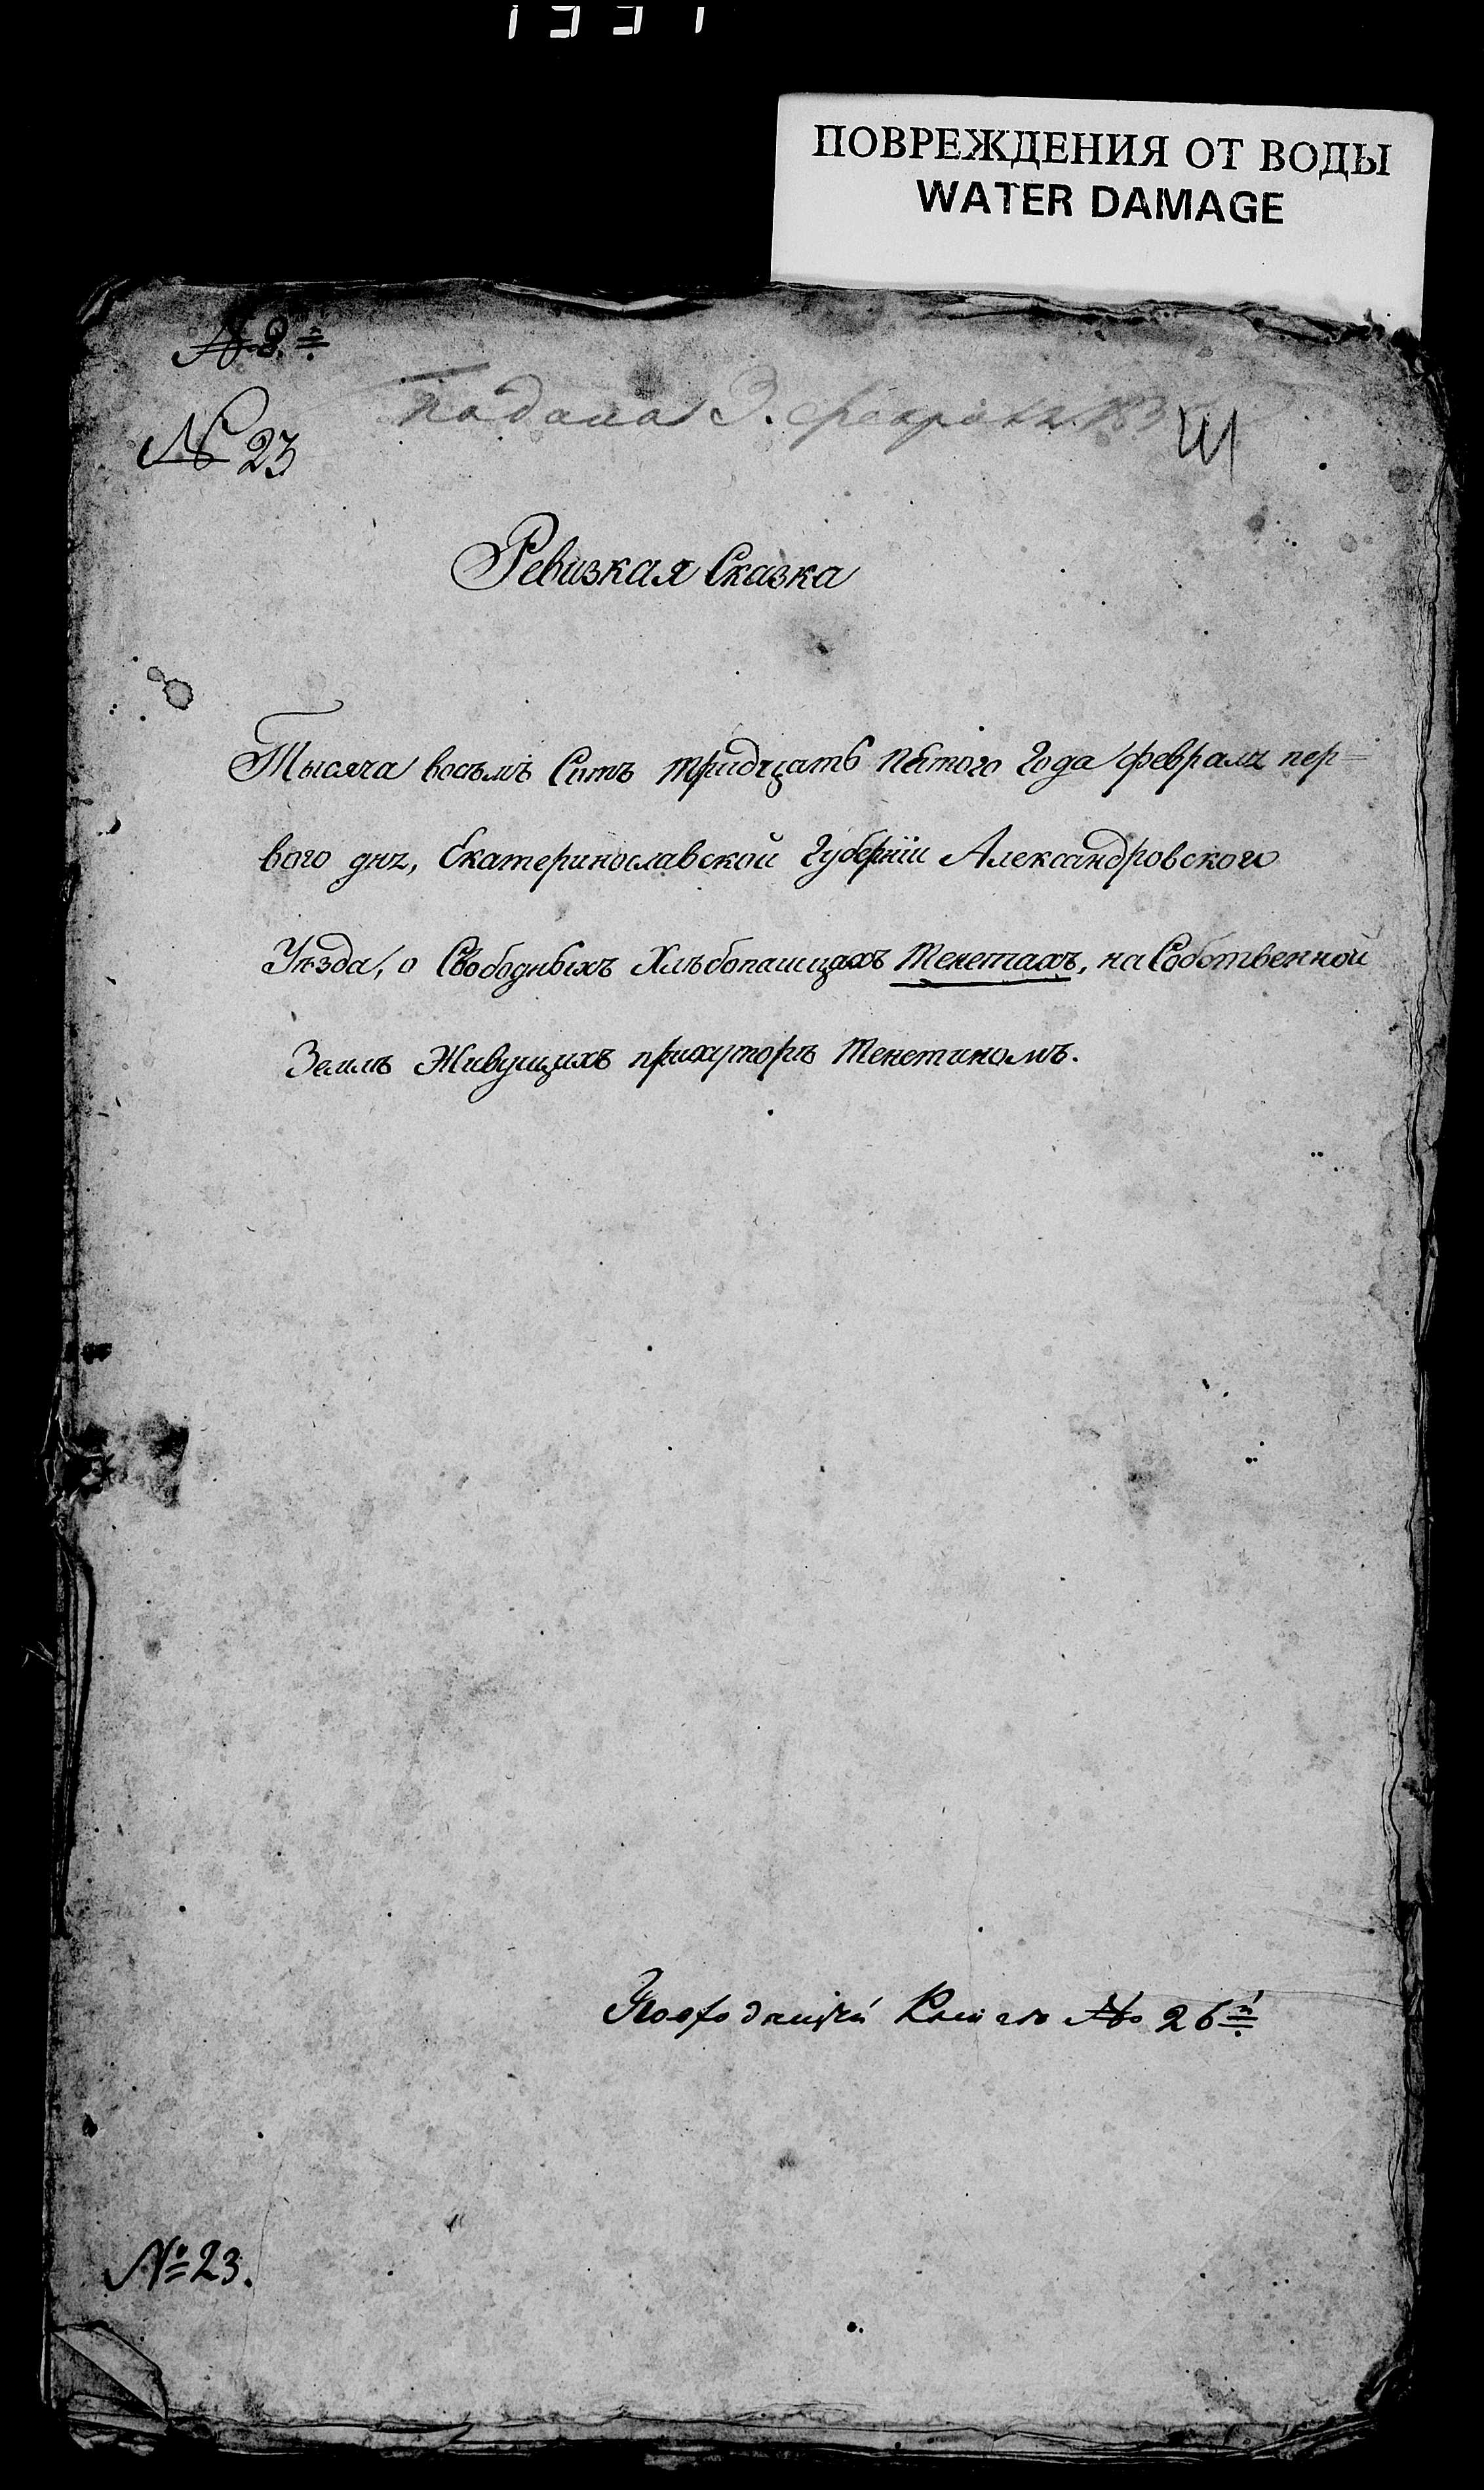 ПОВРЕЖДЕНИЯ ОТ ВОДЫ
WATER DAMAGE
№ 8й
Подана 3. февраля 183
№ 23
Ревизкая Сказка
Тысяча восъмъ Сотъ тридцать пятого Года февраля пер=
вого дня, Екатеринославской Губерніи Александровского
Уѣзда, о Свободныхъ Хлѣбопашцахъ Тенетахъ, на Собственной
Землѣ Живущихъ прихуторѣ Тенетиномъ.
Книге № 26й
№ 23.